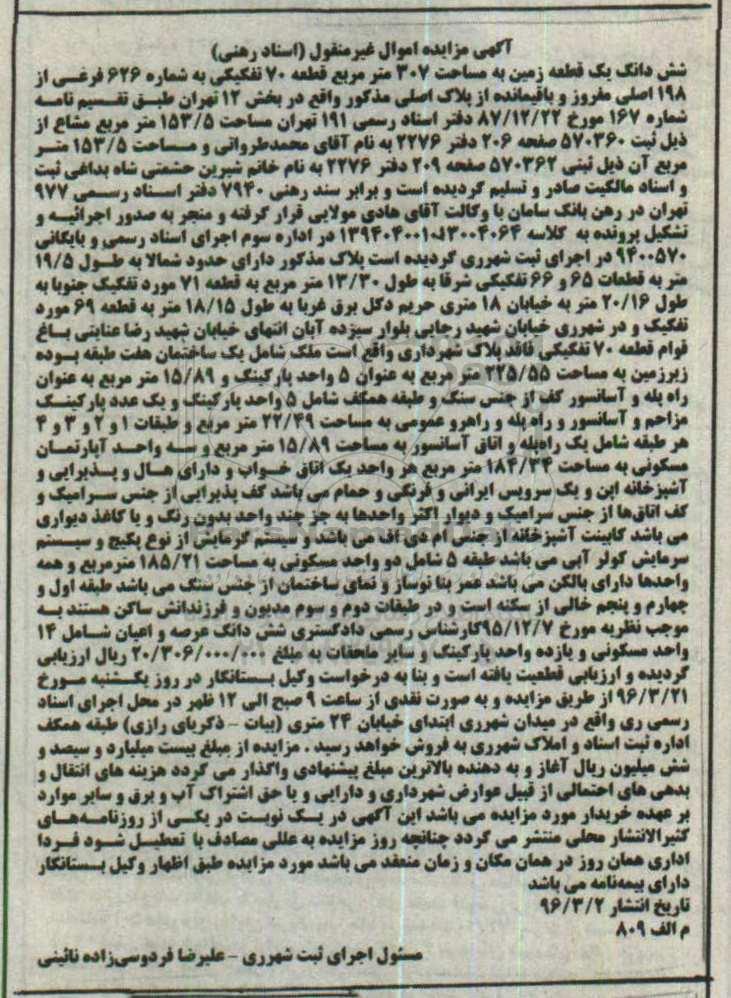 آگهی مزایده اموال غیرمنقول (اسناد رهنی)
شش دانگ یک قطعه زمین به مساحت ۳۰۷ متر مربع قطعه ۷۰ تفکیکی به شماره ۶۲۶ فرعی از
۱۹۸ اصلی مفروز و باقیمانده از پلاک اصلی مذکور واقع در بخش ۱۲ تهران طبق تقسیم نامه
شماره ۱۶۷ مورخ ۸۷/۱۲/۲۲ دفتر اسناد رسمی ۱۹۱ تهران مساحت ۱۵۳/۵ متر مربع مشاع از
ذیل ثبت ۵۷۰۳۶۰ صفحه ۲۰۶ دفتر ۲۲۷۶ به نام آقای محمدطروانی و مساحت ۱۵۳/۵ متر
مربع آن ذیل ثبتی ۵۷۰۳۶۲ صفحه ۲۰۹ دفتر ۲۲۷۶ به نام خانم شیرین حشمتی شاه بداغی ثبت
و اسناد مالکیت صادر و تسلیم گردیده است و برابر سند رهنی ۷۹۴۰ دفتر اسناد رسمی ۹۷۷
تهران در رهن بانک سامان با وکالت آقای هادی مولایی قرار گرفته و منجر به صدور اجرائیه و
تشکیل پرونده به کلاسه در اداره سوم اجرای اسناد رسمی و بایگانی
۹۴۰۰۵۷۰ در اجرای ثبت شهرری گردیده است پلاک مذکور دارای حدود شمالا به طول ۱۹/۵
متر به قطعات ۶۵ و ۶۶ تفکیکی شرقا به طول ۱۳/۳۰ متر مربع به قطعه ۷۱ مورد تفکیک جنوبا به
طول ۲۰/۱۶ متر به خیابان ۱۸ متری حریم دکل برق غربا به طول ۱۸/۱۵ متر به قطعه ۶۹ مورد
تفکیک و در شهرری خیابان شهید رجایی بلوار سیزده آبان انتهای خیابان شهید رضا عنایتی باغ
قوام قطعه ۷۰ تفکیکی فاقد پلاک شهرداری واقع است ملک شامل یک ساختمان هفت طبقه بوده
زیرزمین به مساحت ۲۲۵/۵۵ متر مربع به عنوان ۵ واحد پارکینگ و ۱۵/۸۹ متر مربع به عنوان
راه پله و آسانسور کف از جنس سنگ و طبقه همکف شامل ۵ واحد پارکینگ و یک عدد پارکینگ
مزاحم و آسانسور و راه پله و راهرو عمومی به مساحت ۲۲/۴۹ متر مربع و طبقات ۱ و ۲ و ۳ و ۴
هر طبقه شامل یک راه‌پله و اتاق آسانسور به مساحت ۱۵/۸۹ متر مربع و سه واحد آپارتمان
مسکونی به مساحت ۱۸۴/۳۴ متر مربع هر واحد یک اتاق خواب و دارای هال و پذیرایی و
آشپزخانه اپن و یک سرویس ایرانی و فرنگی و حمام می باشد کف پذیرایی از جنس سرامیک و
کف اتاق‌ها از جنس سرامیک و دیوار اکثر واحدها به جز چند واحد بدون رنگ و یا کاغذ دیواری
می باشد کابینت آشپزخانه از جنس ام دی اف می باشد و سیستم گرمایش از نوع پکیج و سیستم
سرمایش کولر آبی می باشد طبقه ۵ شامل دو واحد مسکونی به مساحت ۱۸۵/۲۱ مترمربع و همه
واحدها دارای بالکن می باشد عمر بنا نوساز و نمای ساختمان از جنس سنگ می باشد طبقه اول و
چهارم و پنجم خالی از سکنه است و در طبقات دوم و سوم مدیون و فرزندانش ساکن هستند به
موجب نظریه مورخ ۹۵/۱۲/۷کارشناس رسمی دادگستری شش دانگ عرصه و اعیان شامل ۱۴
واحد مسکونی و یازده واحد پارکینگ و سایر ملحقات به مبلغ ۲۰/۳۰۶/۰۰۰/۰۰۰ ریال ارزیابی
گردیده و ارزیابی قطعیت یافته است و بنا به درخواست وکیل بستانکار در روز یکشنبه مورخ
۹۶/۳/۲۱ از طریق مزایده و به صورت نقدی از ساعت ۹ صبح الی ۱۲ ظهر در محل اجرای اسناد
رسمی ری واقع در میدان شهرری ابتدای خیابان ۲۴ متری (بیات - ذکریای رازی) طبقه همکف
اداره ثبت اسناد و املاک شهرری به فروش خواهد رسید . مزایده از مبلغ بیست میلیارد و سیصد و
شش میلیون ریال آغاز و به دهنده بالاترین مبلغ پیشنهادی واگذار می گردد هزینه های انتقال و
بدهی های احتمالی از قبیل عوارض شهرداری و دارایی و یا حق اشتراک آب و برق و سایر موارد
بر عهده خریدار مورد مزایده می باشد این آگهی در یک نوبت در یکی از روزنامه‌های
کثیرالانتشار محلی منتشر می گردد چنانچه روز مزایده به عللی مصادف با تعطیل شود فردا
اداری همان روز در همان مکان و زمان منعقد می باشد مورد مزایده طبق اظهار وکیل بستانکار
دارای بیمه‌نامه می باشد
تاریخ انتشار ۹۶/۳/۲
م الف ۸۰۹
مسئول اجرای ثبت شهرری - علیرضا فردوسی‌زاده نائینی